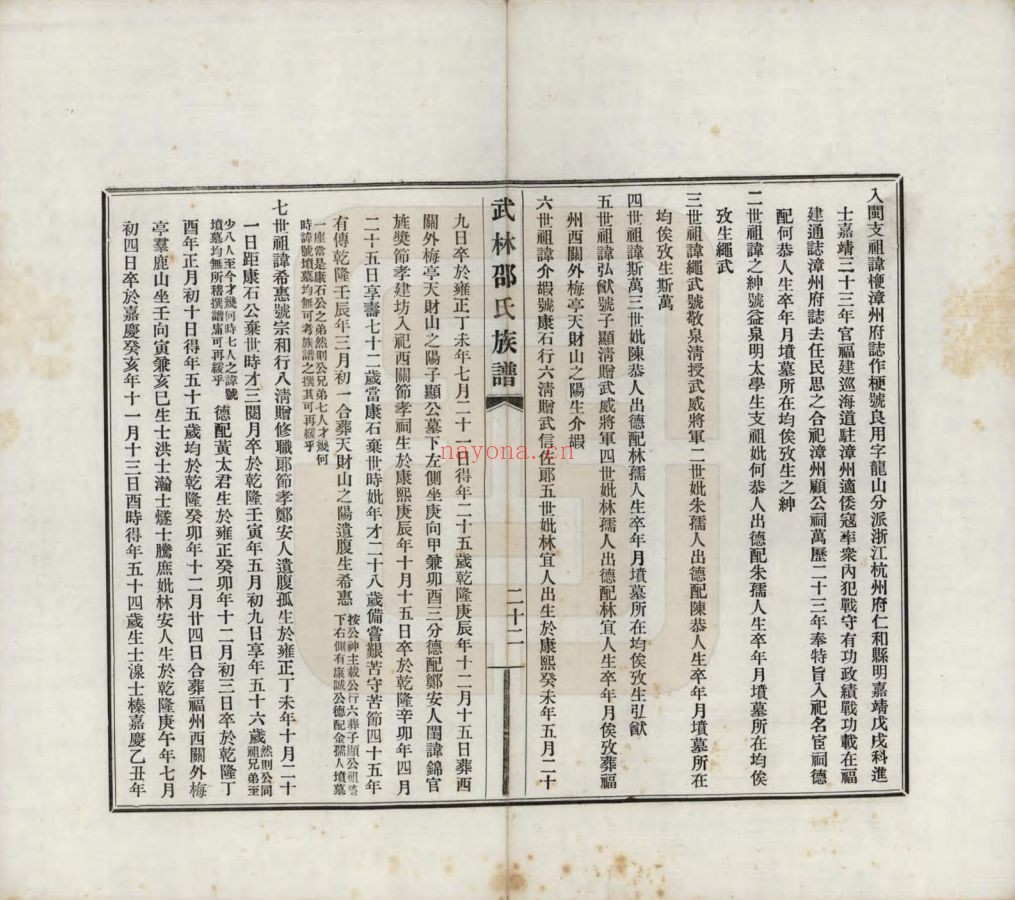 入閩支祖諱楩漳州府誌作梗號良用字龍山分派浙江杭州府仁和縣明嘉靖戊戌科進
士嘉靖三十三年官福建巡海道駐漳州適倭寇率衆內犯戰守有功政績戰功載在福
建通誌漳州府誌去任民思之合祀漳州顧公祠萬歷二十三年奉特旨入祀名宦祠德
配何恭人生卒年月墳墓所在均俟攷生之紳
二世祖諱之紳號益泉明太學生支祖妣何恭人出德配朱孺人生卒年月墳墓所在均俟
攷生繩武
三世祖諱繩武號敬泉淸授武威將軍二世妣朱孺人出德配陳恭人生卒年月墳墓所在
均俟攷生斯萬
四世祖諱斯萬三世妣陳恭人出德配林孺人生卒年月墳墓所在均俟攷生弘猷
五世祖諱弘猷號子顯淸贈武威將軍四世妣林孺人出德配林宜人生卒年月俟攷葬福
州西關外梅亭天財山之陽生介嘏
六世祖諱介嘏號康石行六淸贈武信佐郞五世妣林宜人出生於康熙癸未年五月二十
武林邵氏族譜
二十二
九日卒於雍正丁未年七月二十一日得年二十五歲乾隆庚辰年十二月十五日葬西
關外梅亭天財山之陽子顯公墓下左側坐庚向甲兼卯酉三分德配鄭安人閨諱錦官
旌獎節孝建坊入祀西關節孝祠生於康熙庚辰年十月十五日卒於乾隆辛卯年四月
二十五日享壽七十二歲當康石棄世時妣年才二十八歲備嘗艱苦守苦節四十五年
有傳乾隆壬辰年三月初一合葬天財山之陽遺腹生希惠按公神主載公行六葬子顯公祖塋
下右側有康誠公德配金孺人墳墓
一座當是康石公之弟然則公兄弟七人才幾何
時諱號墳墓均無可考族譜之撰其可再緩乎
七世祖諱希惠號宗和行八淸贈修職郞節孝鄭安人遺腹孤生於雍正丁未年十月二十
一日距康石公棄世時才三閱月卒於乾隆壬寅年五月初九日享年五十六歲然則公同
祖兄弟至
少八人至今才幾何時七人之諱號
墳墓均無所稽撰譜庸可再緩乎德配黃太君生於雍正癸卯年十二月初三日卒於乾隆丁
酉年正月初十日得年五十五歲均於乾隆癸卯年十二月廿四日合葬福州西關外梅
亭羣鹿山坐壬向寅兼亥巳生士洪士瀚士燧士騰庶妣林安人生於乾隆庚午年七月
初四日卒於嘉慶癸亥年十一月十三日酉時得年五十四歲生士湶士榛嘉慶乙丑年
nayona.cn